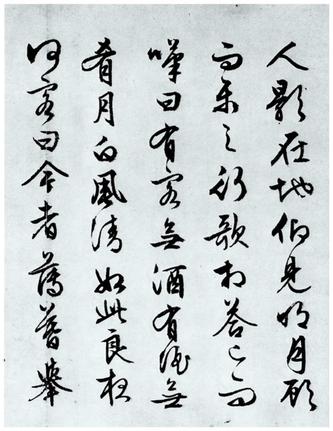 人影在地仰見明月顧
而樂之行歌相答已而
嘆曰有客無酒有酒無
肴月白風清如此良夜
何客曰今者薄暮舉